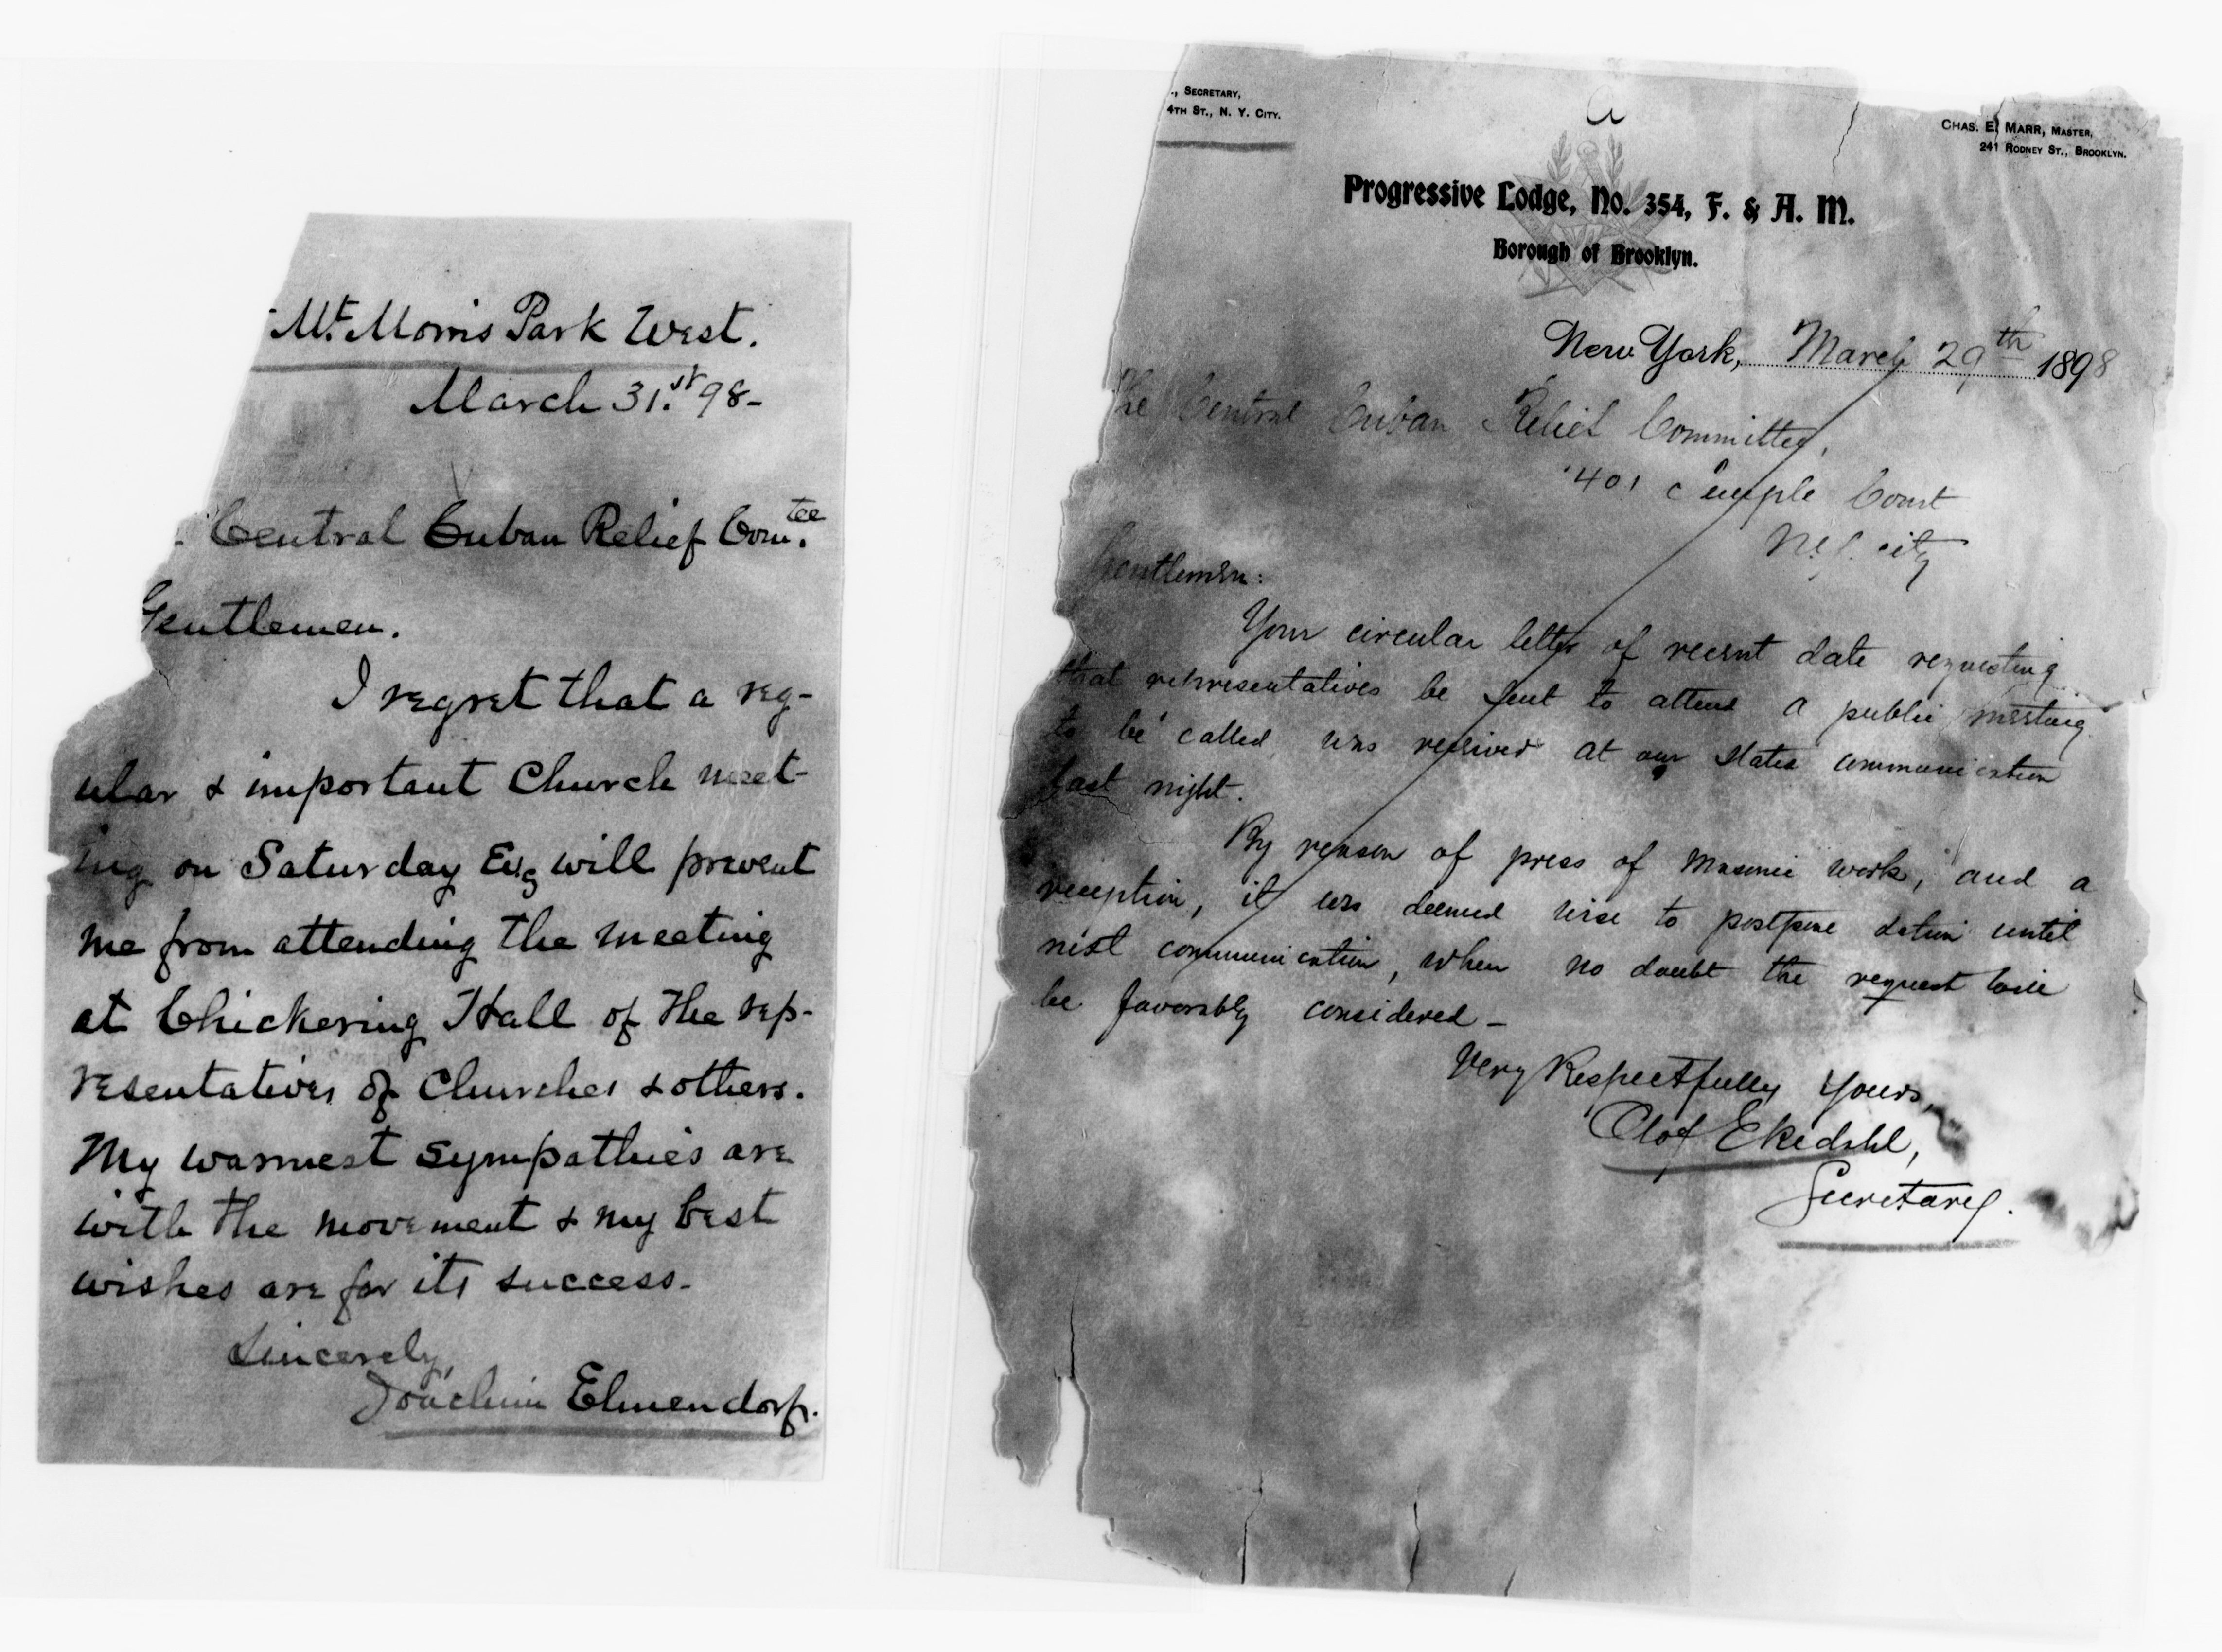 Mt. Morris Park West.
March 31.st 98-
Central Cuban Relief Com.tee
Gentlemen.
I regret that a reg-
ular & important Church meet-
ing on Saturday Evg will prevent
me from attending the meeting
at Chickering Hall of the rep-
resentatives of Churches & others.
My warmest sympathies are
with the movement & my best
wishes are for its success-
Sincerely,
Joachim Elmendorf.
., Secretary,
4th St., N. Y. City.
Chas. E. Marr, Master,
241 Rodney St., Brooklyn.
Progressive Lodge, No. 354, F. & A. M.
Borough of Brooklyn.
New York, March 29th 1898
The Central Cuban Relief Committee,
401 Temple Court
N.Y. City
Gentlemen:
Your circular letter of recent date requesting
that representatives be sent to attend a public meeting
to be called, was received at our stated communication
last night.
By reason of press of Masonic work, and a
reception, it was deemed wise to postpone action until
next communication, when no doubt the request will
be favorably considered -
Very Respectfully Yours,
Olof Ekedahl,
Secretary.